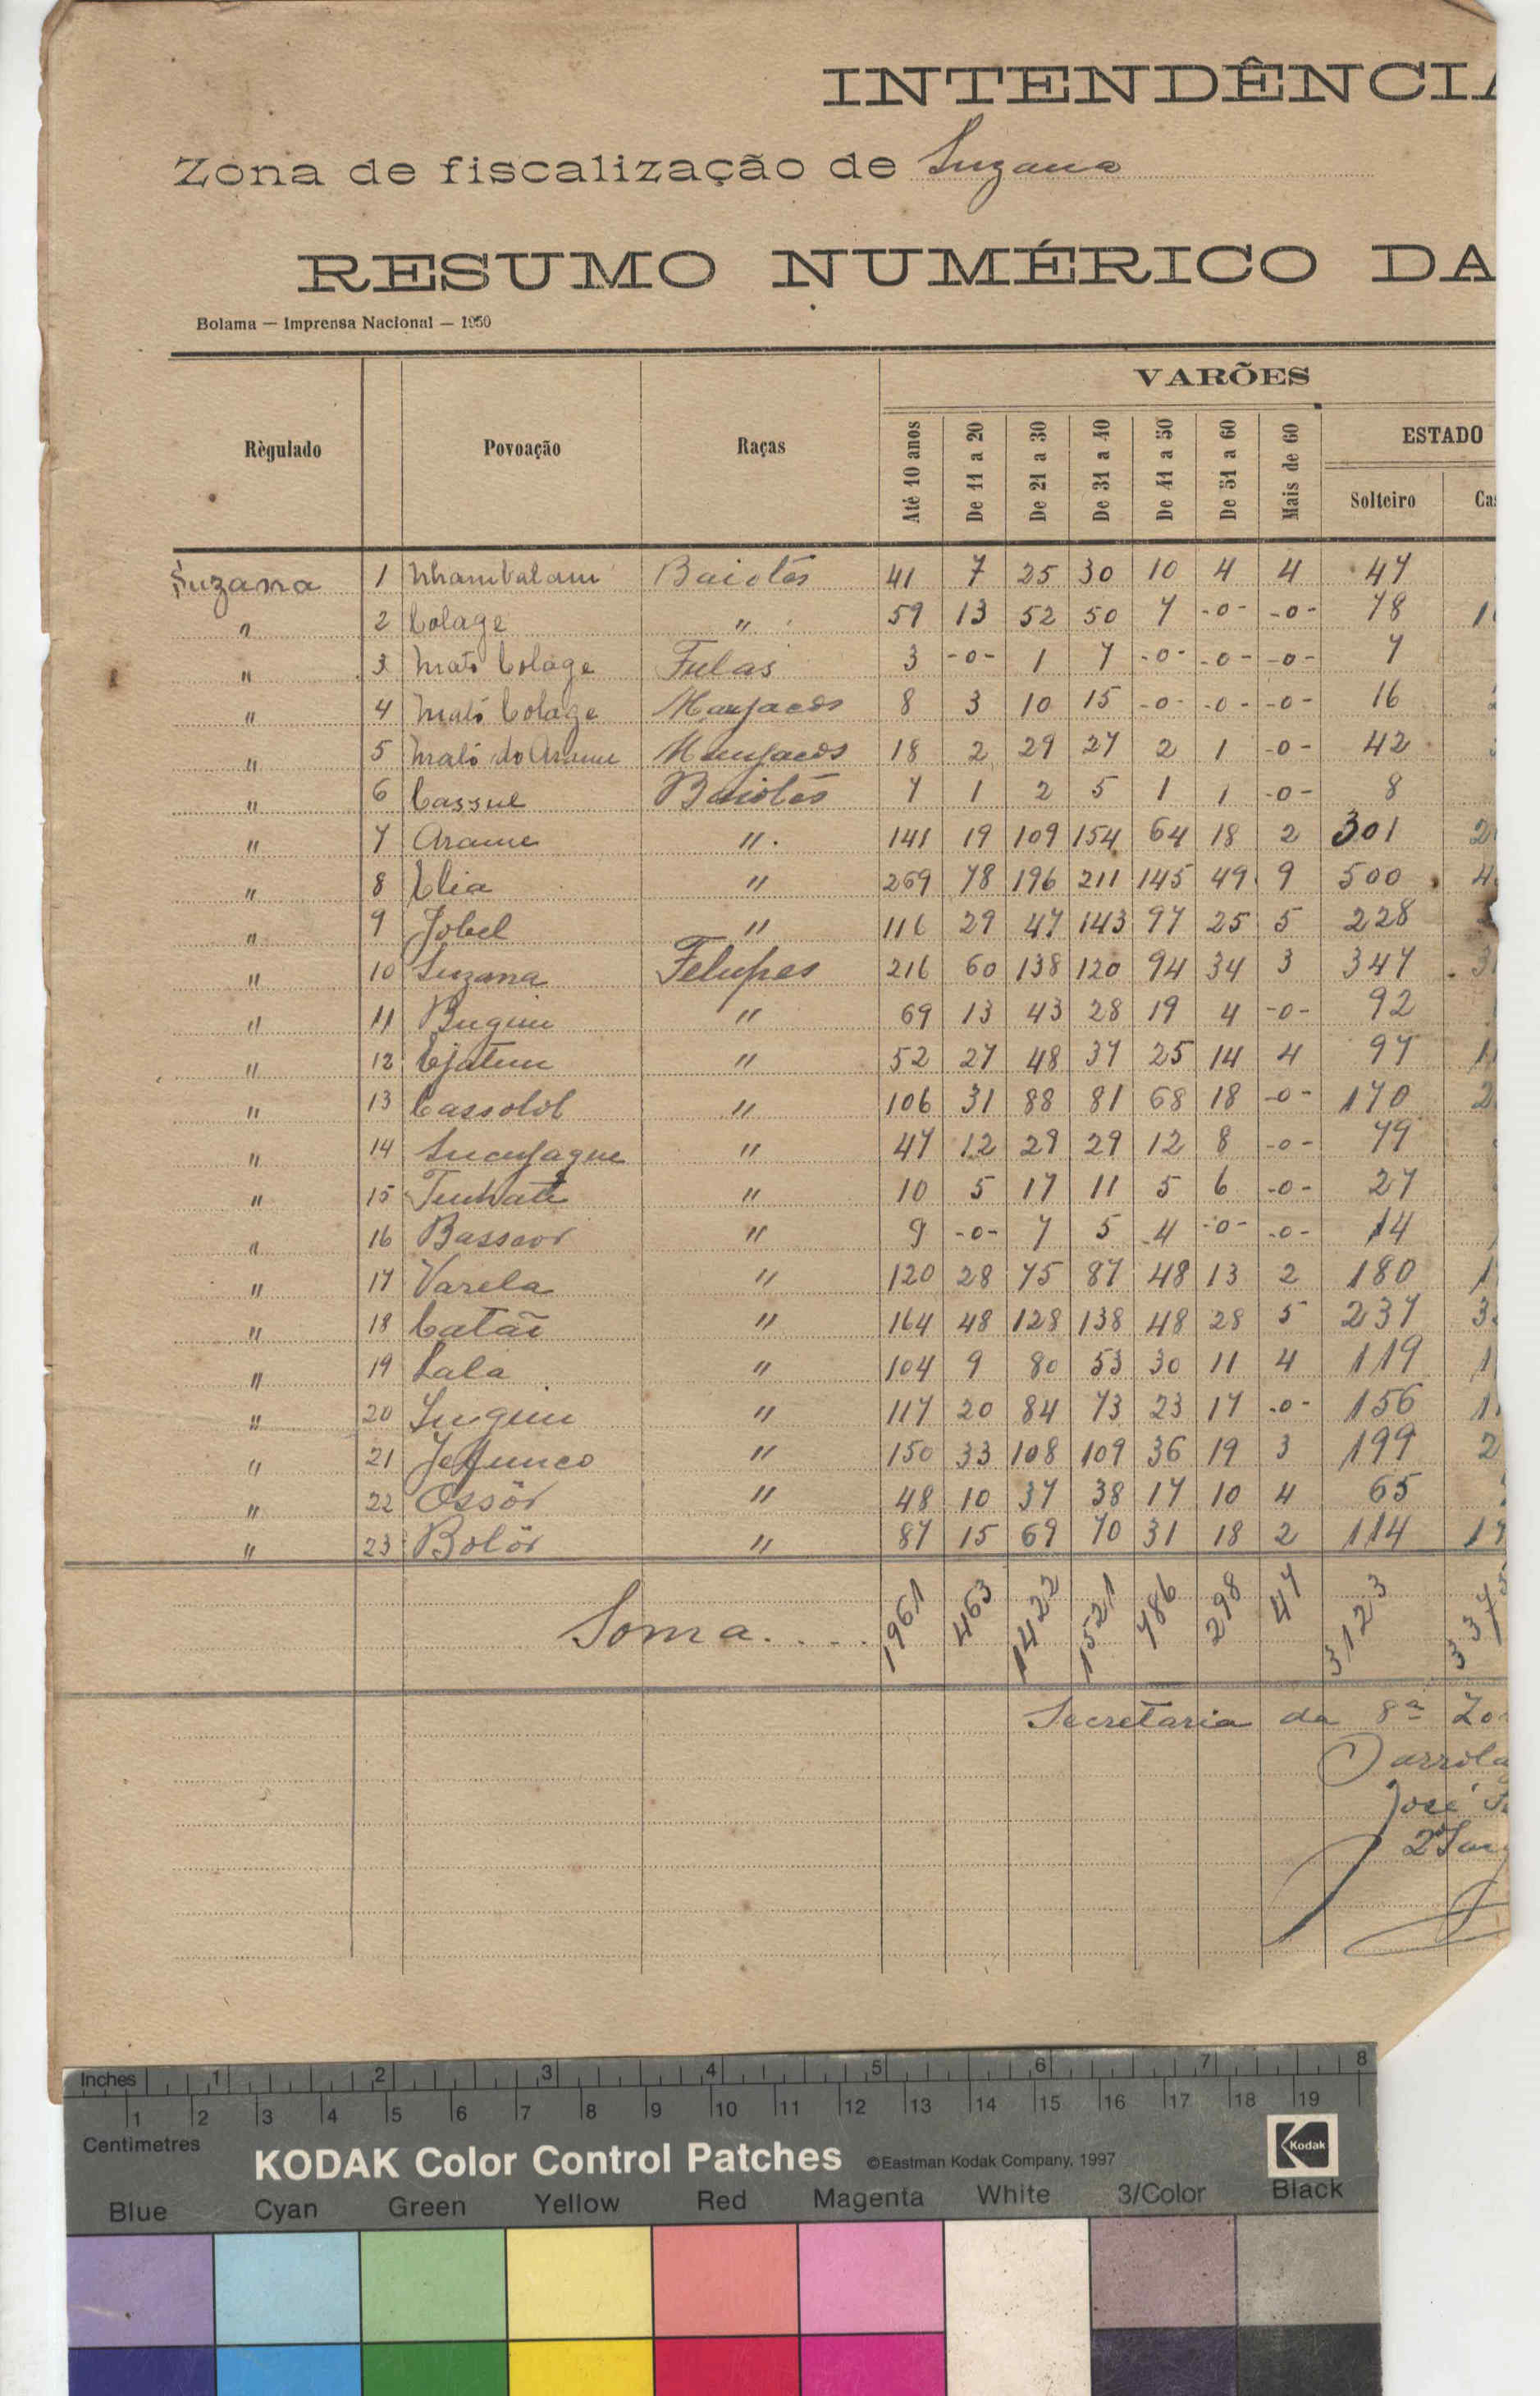 INTENDÊNCIA
Zona de fiscalização de Suzana
RESUMO NUMÉRICO DA
Bolama — Imprensa Nacional — 1950
VARÕES
Règulado Povoação Raças Até 10 anos De 11 a 20 De 21 a 30 De 31 a 40 De 41 a 50 De 51 a 60 Mais de 60 ESTADO
Solteiro Cas
Suzana 1 Nhambalam Baiotes 41 7 25 30 10 4 4 47
" 2 Colage " 59 13 52 50 7 -0- -0- 78 1
" 3 Mato Colage Fulas 3 -0- 1 7 -0- -0- -0- 7
" 4 Mato Colage Manjacos 8 3 10 15 -0- -0- -0- 16
" 5 Mato do Arame Manjacos 18 2 29 27 2 1 -0- 42
" 6 Cassue Baiotes 7 1 2 5 1 1 -0- 8
" 7 Arame " 141 19 109 154 64 18 2 301 2
" 8 Elia " 269 78 196 211 145 49 9 500 4
" 9 Jobel " 116 29 47 143 97 25 5 228
" 10 Suzana Felupes 216 60 138 120 94 34 3 347 3
" 11 Bugim " 69 13 43 28 19 4 -0- 92
" 12 Ejatem " 52 27 48 37 25 14 4 97 1
" 13 Cassolol " 106 31 88 81 68 18 -0- 170 2
" 14 Sucujaque " 47 12 29 29 12 8 -0- 79
" 15 Tenhate " 10 5 17 11 5 6 -0- 27
" 16 Basseor " 9 -0- 7 5 4 -0- -0- 14
" 17 Varela " 120 28 75 87 48 13 2 180 1
" 18 Catão " 164 48 128 138 48 28 5 237 3
" 19 Lala " 104 9 80 53 30 11 4 119 1
" 20 Jugum " 117 20 84 73 23 17 -0- 156 1
" 21 Jefunco " 150 33 108 109 36 19 3 199 2
" 22 Ossôr " 48 10 37 38 17 10 4 65
" 23 Bolôr " 87 15 69 70 31 18 2 114 17
Soma.... 1961 463 1422 1521 786 298 47 3123 337
Secretaria da 8ª Zo
O arrola
José
2º Sarg
Inches 1 2 3 4 5 6 7 8
1 2 3 4 5 6 7 8 9 10 11 12 13 14 15 16 17 18 19
Centimetres
KODAK Color Control Patches ©Eastman Kodak Company, 1997 Kodak
Blue Cyan Green Yellow Red Magenta White 3/Color Black